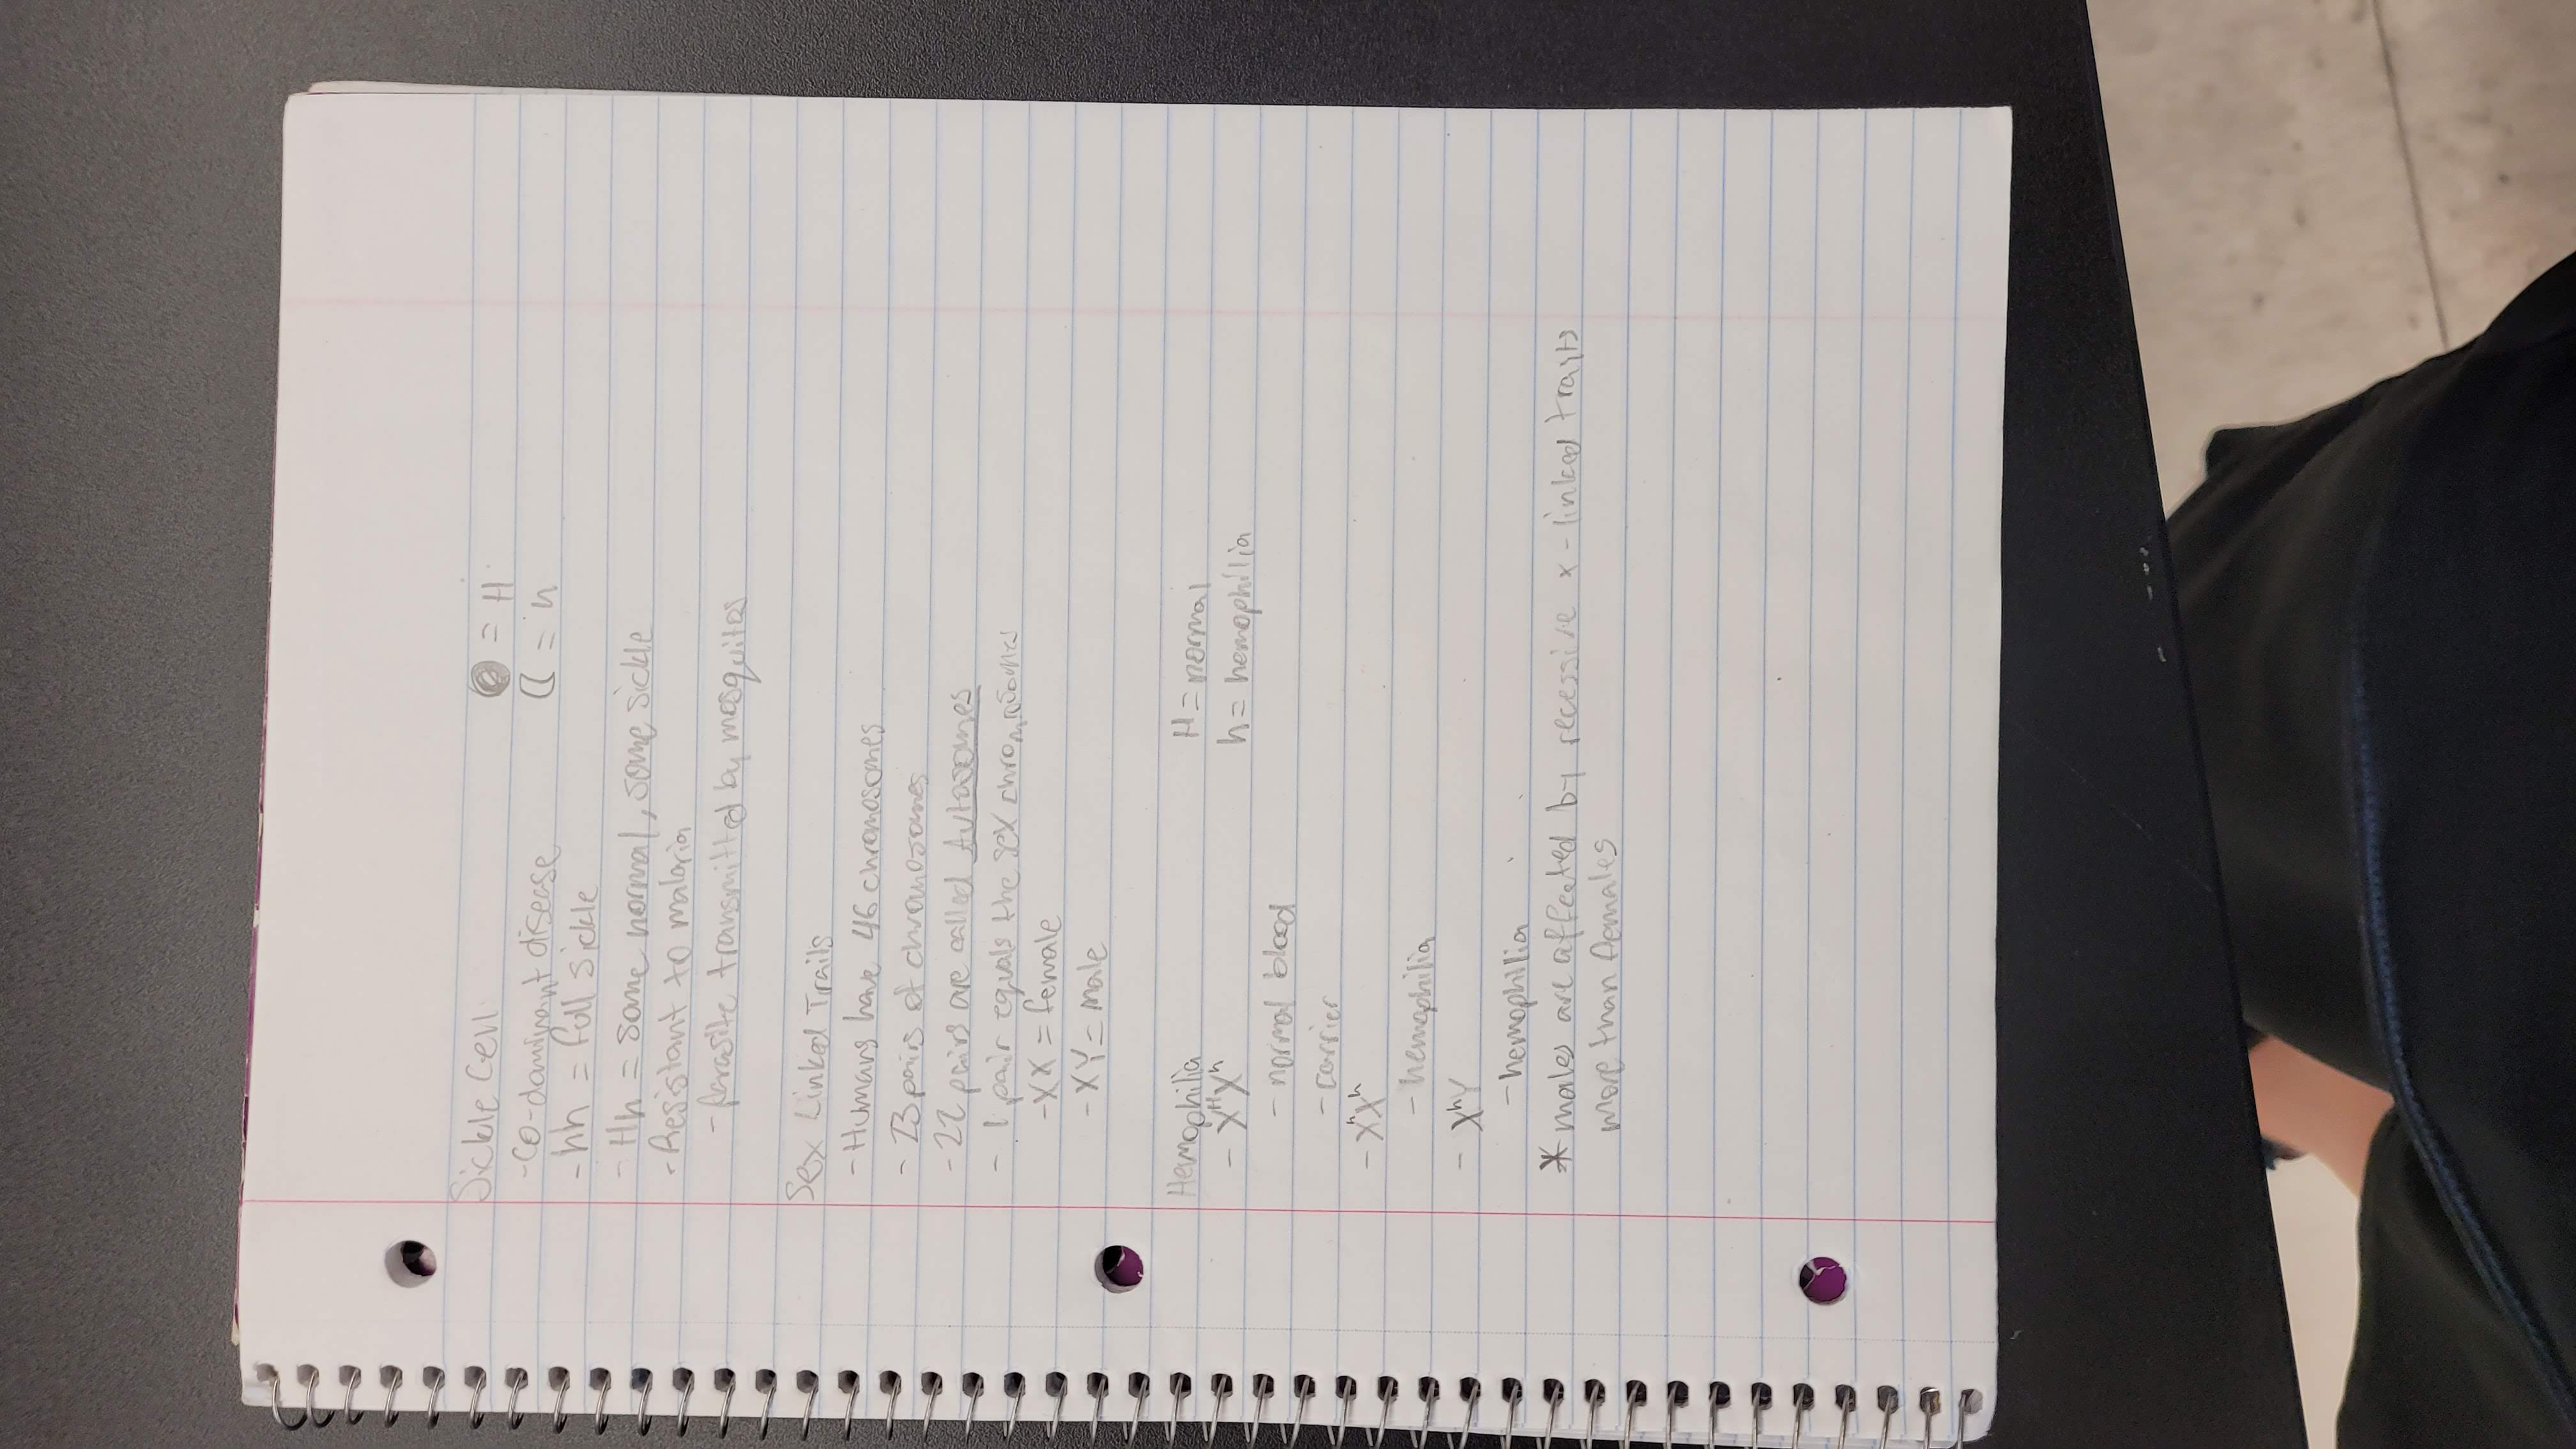 Sickle Cell
= H
-co-dominant disease
= h
-hh = full sickle
-Hh = some normal, some sickle
-Resistant to malaria
-Parasite transmitted by mosquitos
Sex Linked Trails
-Humans have 46 chromosomes
-23 pairs of chromosomes
-22 pairs are called Autosomes
-1 pair equals the sex chromosomes
-XX = female
-XY = male
Hemophilia H = normal
-X^H X^h h = hemophilia
-normal blood
-carrier
-X^h X^h
-hemophilia
-X^h Y
-hemophilia
* males are affected by recessive x-linked traits
more than females